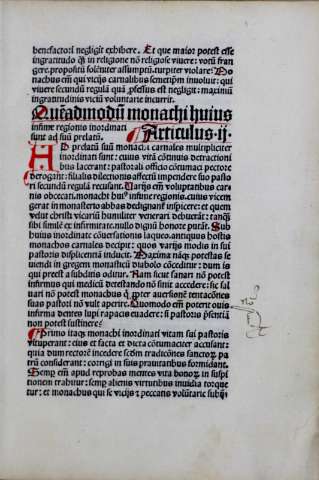 benefactori negligit exhibere. Et que maior potest esse
ingratitudo q̄ in religione nō religiose vivere: votū fran
gere. propositū solēniter assumptū. turpiter violare: Mo
nachus em̄ qui vicijs carnalibus semetipm̄ involuit: qui
vivere secundū regulā quā ꝓfessus est negligit: maximū
ingratitudinis viciū voluntarie incurrit.
Quēadmodū monachi huius
infime regionis inordinati
sunt ad suū prelatū.
Articulus.ij.
AD prelatū suū monachi carnales multipliciter
inordinati sunt: cuius vitā cōtinuis detractioni
bus lacerant: pastorali officio cōtumaci pectore
derogant: filialis dilectionis affectū impendere suo pasto
ri secundū regulā recusant. Varijs em̄ voluptatibus car-
nis obcecati. monachi huiꝰ infime regionis. cuius vicem
gerat in monasterio abbas dedignant̉ inspicere: et quem
velut christi vicariū humiliter venerari debuerāt: tanq̄
sibi similē et infirmitate. nullo dignū honore putāt. Sub
huius inordinate cōversationis laqueo. antiquus hostis
monachos carnales decipit: quos varijs modis in sui
pastoris displicentiā inducit. Maxima nāq̨ potestas se-
viendi in gregem monasticū diabolo cōceditur: dum is
qui preest a subditis oditur. Nam sicut sanari nō potest
infirmus qui medicū detestando nō sinit accedere: sic sal
uari nō potest monachus q̄ ꝓpter auersionē tentacōnes
suas pastori nō vult aperire. Quomodo em̄ potent ouis
infirma dentes lupi rapacis euadere: si pastoris p̄sentiā
non potest sustinere?
Primo itaq̨ monachi inordinati vitam sui pastoris
vituperant: eius et facta et dicta cōtumaciter accusant:
quia dum rectorē incedere scdm̄ tradicōnes sanctoꝝ pa
trū considerant: corrigi in suis prauitatibus formidant.
Semp em̄ apud reprobas mentes vita bonoꝝ in suspi
tionem trahitur: semp alienis virtutibus inuidia torque
tur: et monachus qui se vicijs et peccatis volūtarie subij-